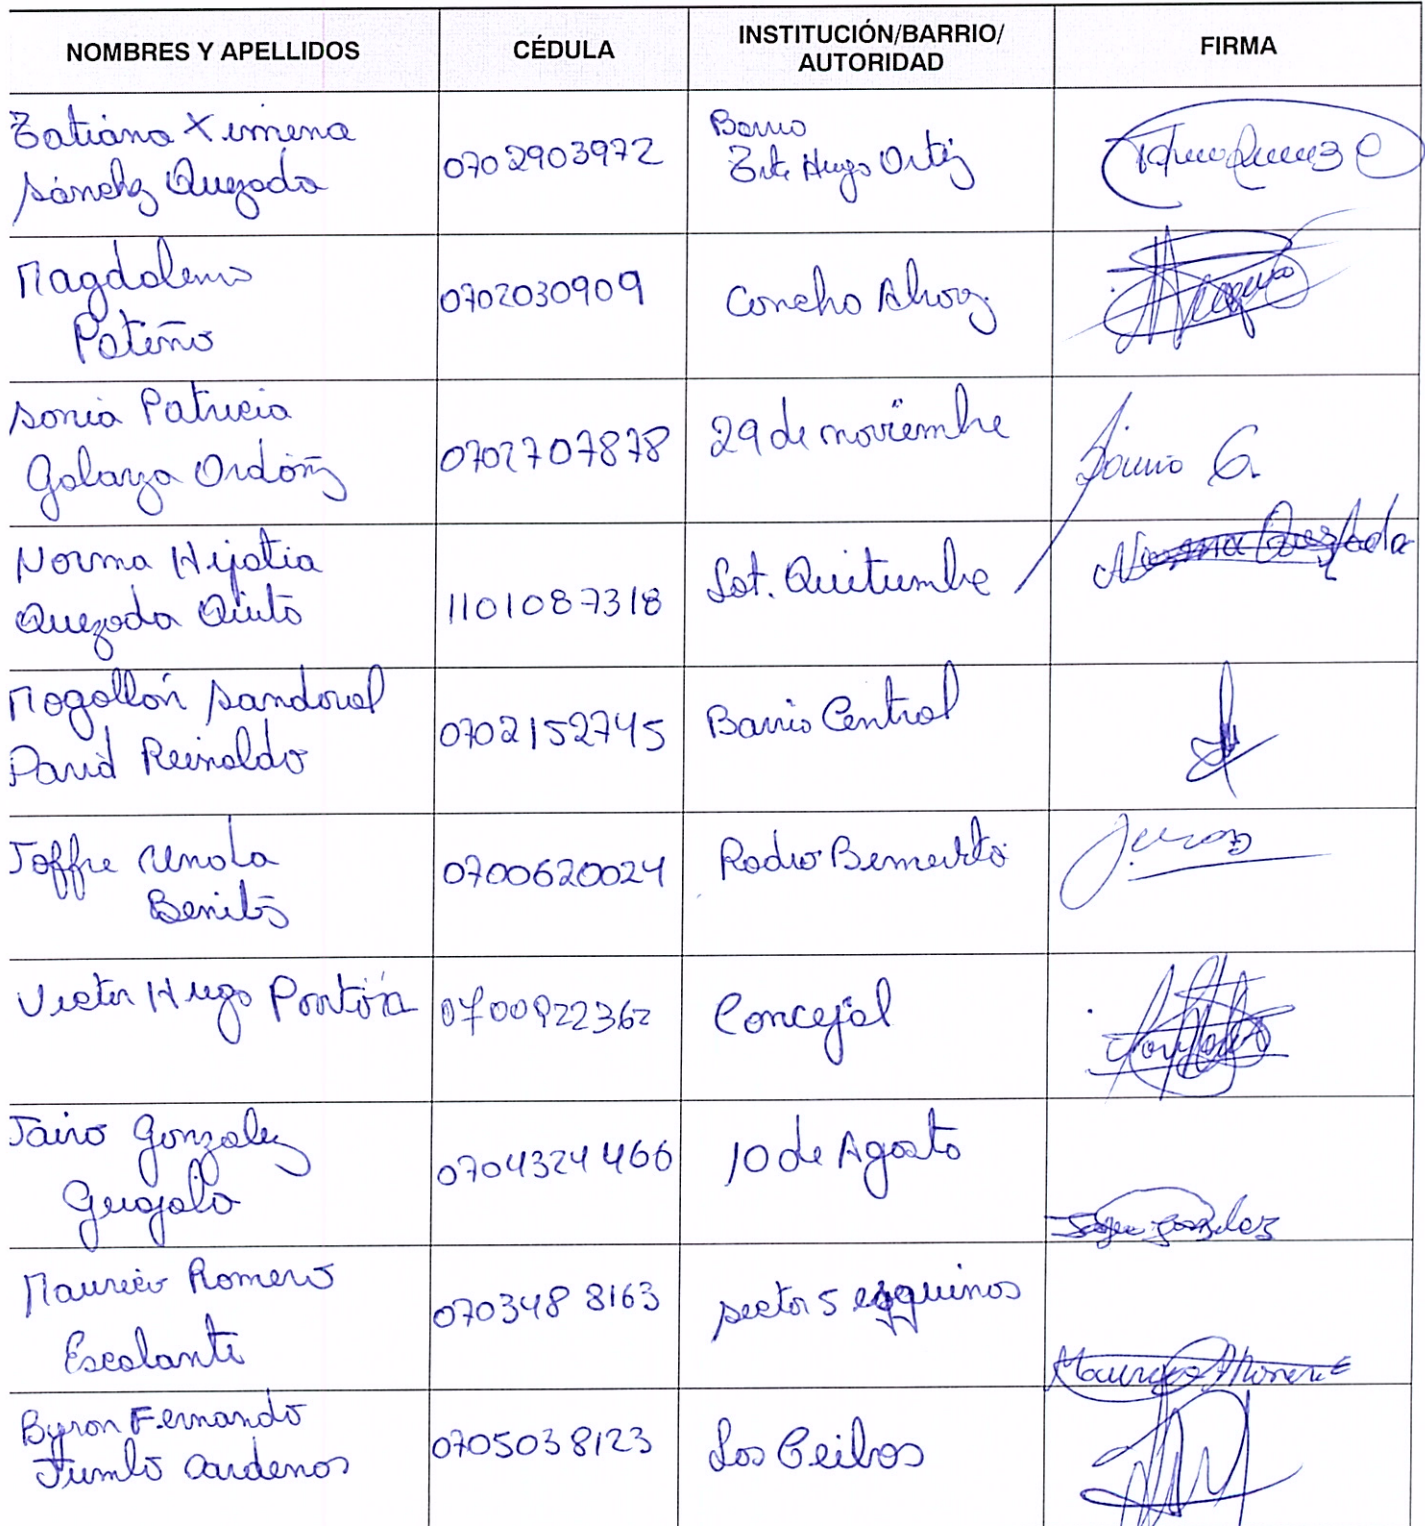 NOMBRES Y APELLIDOS
CÉDULA
INSTITUCIÓN/BARRIO/
AUTORIDAD
FIRMA
Tatiana Ximena
Sánchez Quezada
0702903972
Barrio
Tnte Hugo Ortiz
Magdalena
Patiño
0702030909
Concha Alvoz
Sonia Patricia
Galarza Ordóñz
0702707878
29 de noviembre
Sonia G.
Norma Hipatia
Quezada Quito
1101087318
Lot. Quitumbe
Norma Quezada
Mogollón Sandoval
David Reinaldo
0702152745
Barrio Central
Joffre
Benits
0700620024
Radio Benemérito
Victor Hugo Pontón
0700922362
Concejal
Jairo Gonzalez
0704324466
10 de Agosto
Gonzalez
Mauricio Romero
Escalante
0703488163
sector 5 esquinas
Mauricio
Byron Fernando
Jumbo Cardenas
0705038123
Los Ceibos